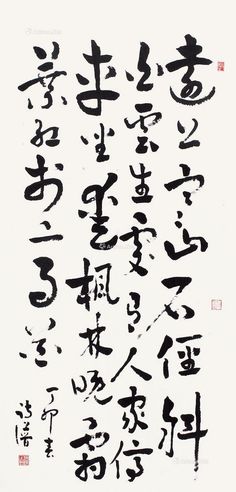 遠上寒山石徑斜
白雲生處有人家停
車坐愛楓林晚霜
葉紅於二月花
丁卯春